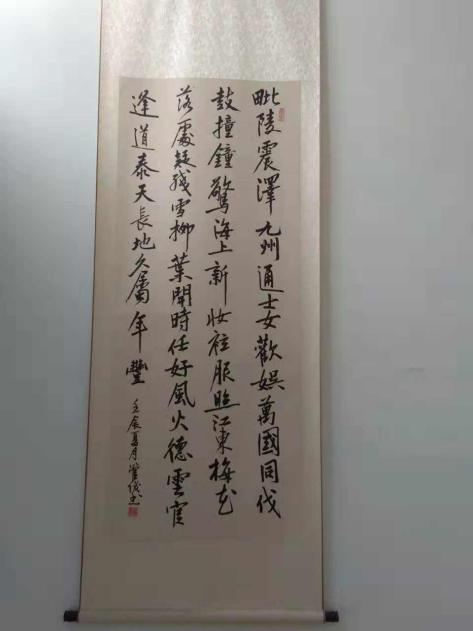 毗陵震澤九州通士女歡娛萬國同伐
鼓撞鐘驚海上新妝袨服照江東梅花
落處疑殘雪柳葉開時任好風火德雲官
逢道泰天長地久屬年豐
壬辰夏月